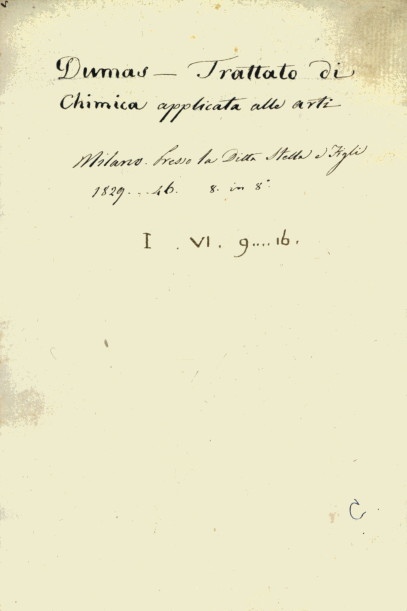 Dumas — Trattato di
Chimica applicata alle arti
Milano. presso la Ditta Stella e Figli
1829...46. 8. in 8°
I . VI . 9....16.
C